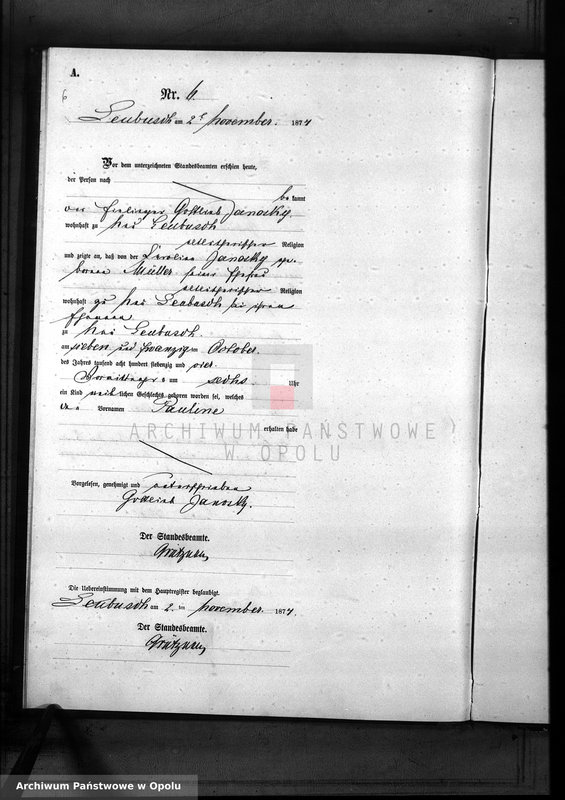 A.
6
Nr. 6.
Leubusch am 2t November 1874
Vor dem unterzeichneten Standesbeamten erschien heute,
der Person nach
be kannt
der Gottlieb Janosky,
wohnhaft zu Leubusch
Religion
und zeigte an, daß von der Karoline Janosky ge-
borene Müller seiner Ehefrau
Religion
wohnhaft zu Leubusch bei ihrem
Ehemann
zu Leubusch.
am sieben und zwanzigten October
des Jahres tausend acht hundert siebenzig und vier
Vormittags um sechs Uhr
ein Kind weiblichen Geschlechts geboren worden sei, welches
Vornamen Pauline
erhalten habe
Vorgelesen, genehmigt und unterschrieben
Gottlieb Janosky.
Der Standesbeamte.
Die Uebereinstimmung mit dem Hauptregister beglaubigt.
Leubusch am 2. ten November 1874.
Der Standesbeamte.
ARCHIWUM PAŃSTWOWE
W OPOLU
Archiwum Państwowe w Opolu